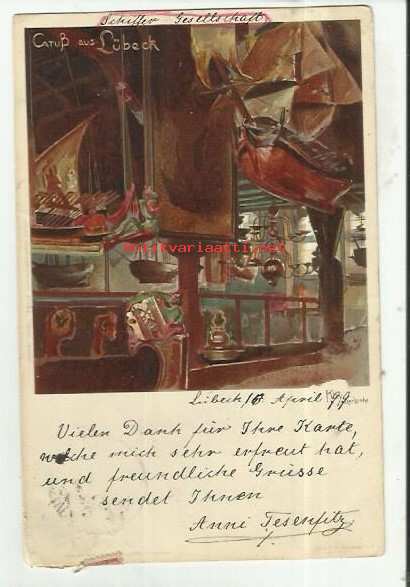 Schiffer Gesellschaft
Gruß aus Lübeck
antikvariaatti.net
Lübeck 16 April 99
Vielen Dank für Ihre Karte,
welche mich sehr erfreut hat,
und freundliche Grüsse
sendet Ihnen
Anni